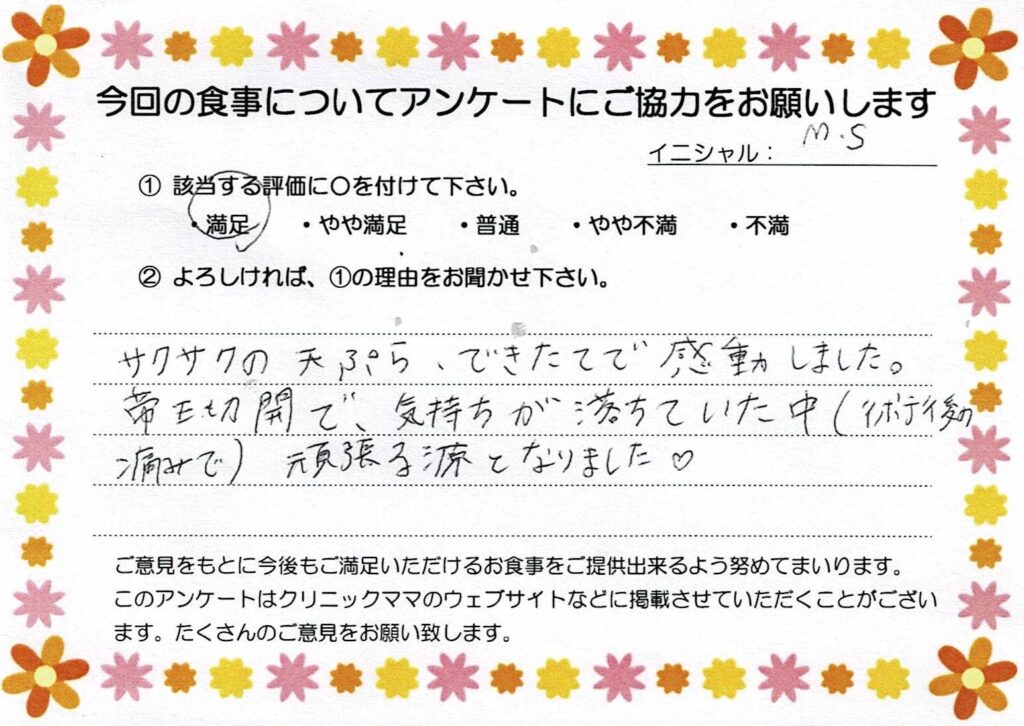 今回の食事についてアンケートにご協力をお願いします
イニシャル： M.S
① 該当する評価に〇を付けて下さい。
・満足 ・やや満足 ・普通 ・やや不満 ・不満
② よろしければ、①の理由をお聞かせ下さい。
サクサクの天ぷら、できたてで感動しました。
帝王切開で、気持ちが落ちていた中(後の
痛みで) 頑張る源となりました♡
ご意見をもとに今後もご満足いただけるお食事をご提供出来るよう努めてまいります。
このアンケートはクリニックママのウェブサイトなどに掲載させていただくことがござい
ます。たくさんのご意見をお願い致します。